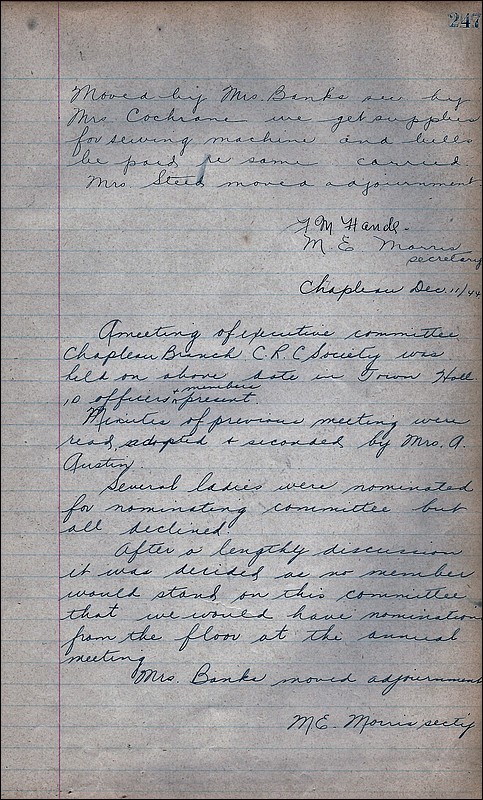 247
Moved by Mrs. Banks sec by
Mrs Cochrane we get supplies
for sewing machine and bills
be paid re same carried
Mrs. Steed moved adjournment.
F M Hands.
M. E Morris
secretary
Chapleau Dec. 11/44
A meeting of executive committee
Chapleau Branch C.R.C Society was
held on above date in Town Hall
10 officers + members present.
Minutes of previous meeting were
read, adopted + seconded by Mrs. A.
Austin.
Several ladies were nominated
for nominating committee but
all declined
After a lengthy discussion
it was decided as no member
would stand on this committee
that we would have nominations
from the floor at the annual
meeting
Mrs. Banks moved adjournment
M.E. Morris secty